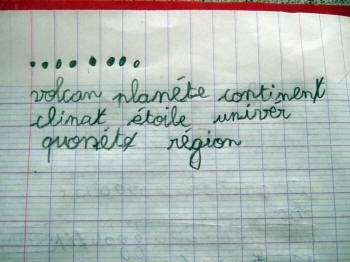 volcan planéte continent
climat étoile univér
région